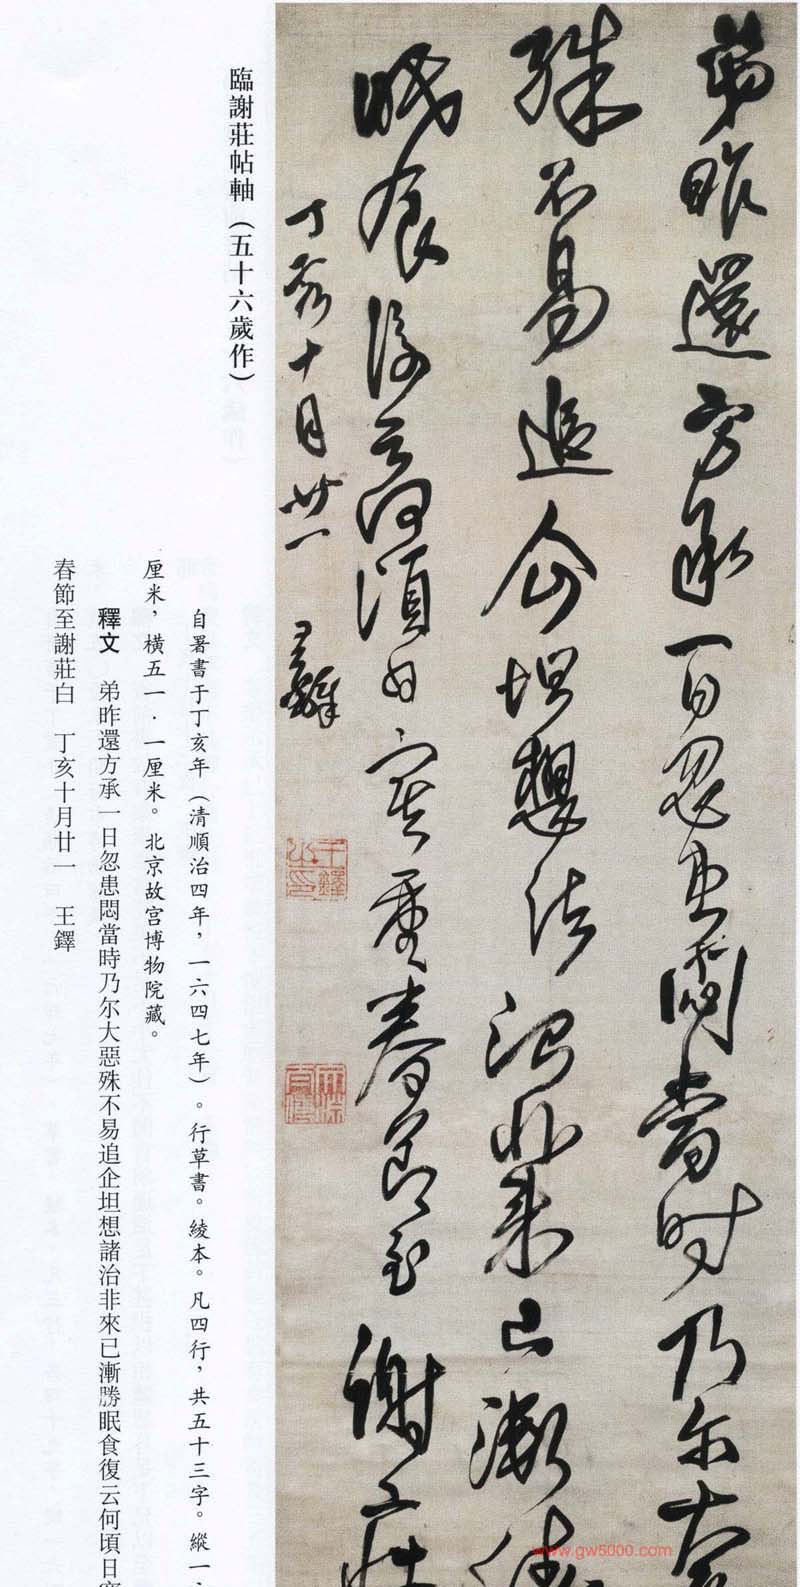 弟昨還方承一日忽患悶當時乃尔大
殊不易追企坦想諸治非來已漸勝
眠食復云何頃日寒重春節至謝莊
丁亥十月廿一 王鐸
王鐸之印
臨謝莊帖軸（五十六歲作）
自署書于丁亥年（清順治四年，一六四七年）。行草書。綾本。凡四行，共五十三字。縱一
厘米，横五一·一厘米。北京故宮博物院藏。
釋文 弟昨還方承一日忽患悶當時乃尔大惡殊不易追企坦想諸治非來已漸勝眠食復云何頃日
春節至謝莊白 丁亥十月廿一 王鐸
www.gw5000.com